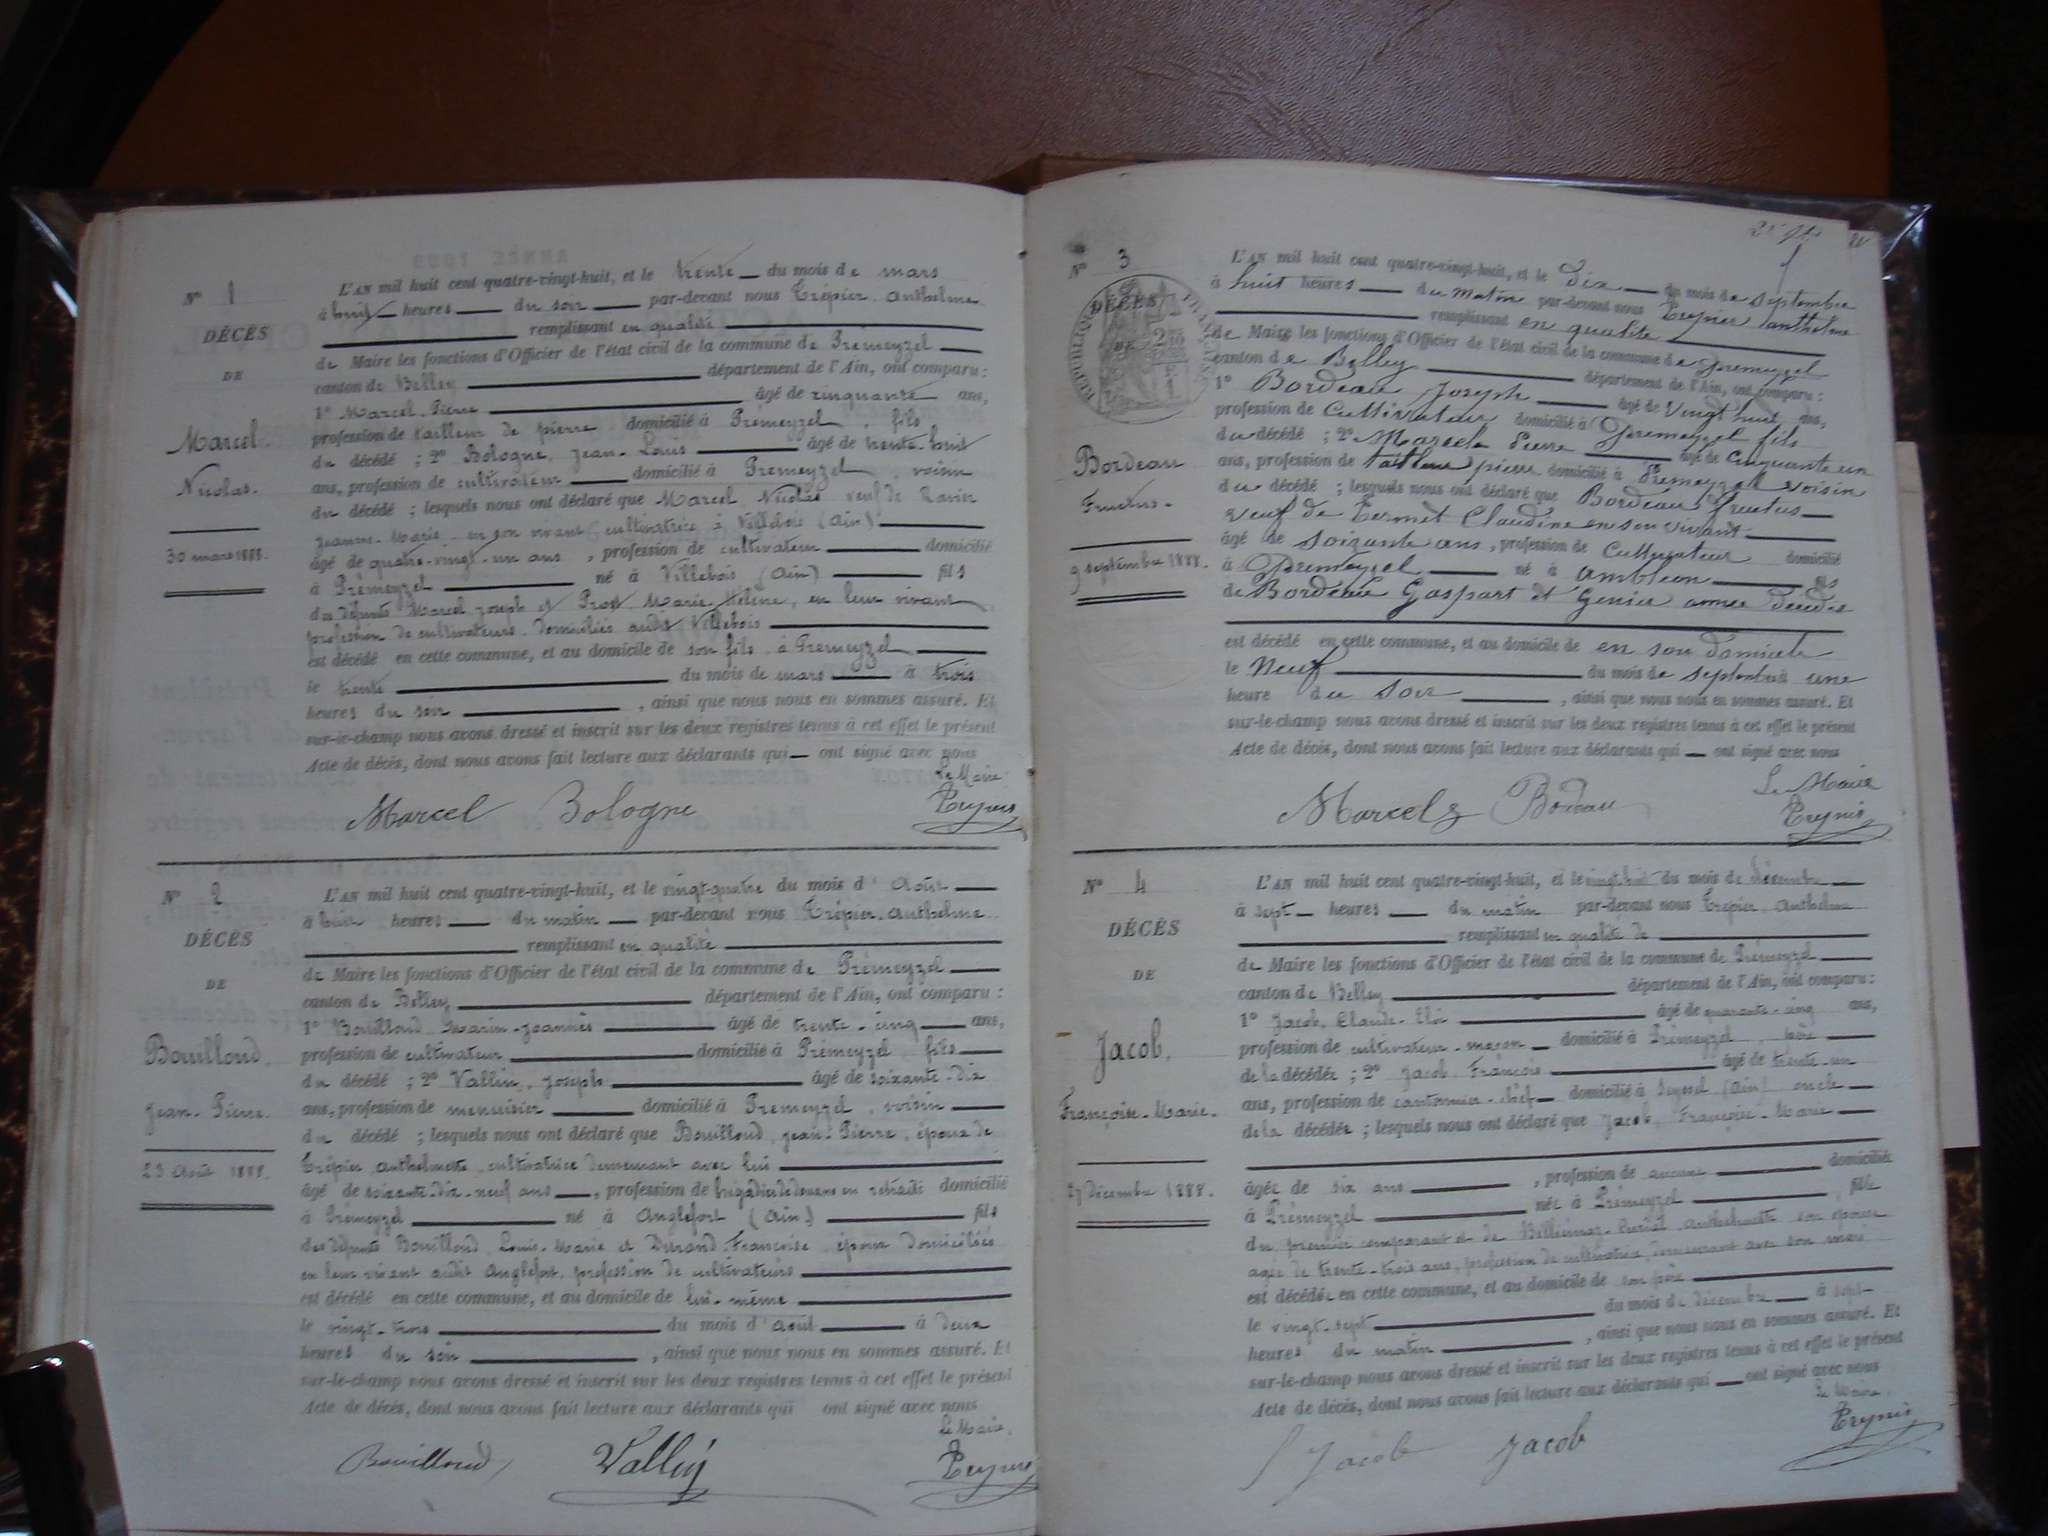 N° 1
DÉCÈS
DE
Marcel
Nicolas.
30 mars 1888.
L'AN mil huit cent quatre-vingt-huit, et le trente du mois de mars
à huit heures du soir par-devant nous Trépier Anthelme
remplissant en qualité
de Maire les fonctions d'Officier de l'état civil de la commune de Prémeyzel
canton de Belley département de l'Ain, ont comparu :
1° Marcel Pierre âgé de cinquante ans,
profession de tailleur de pierre domicilié à Prémeyzel, fils
du décédé ; 2° Bologne, Jean-Louis âgé de trente-huit
ans, profession de cultivateur domicilié à Prémeyzel, voisin
du décédé ; lesquels nous ont déclaré que Marcel Nicolas veuf de
Jeanne-Marie en son vivant cultivatrice à Villebois (Ain)
âgé de quatre-vingt-un ans, profession de cultivateur domicilié
à Prémeyzel né à Villebois (Ain) fils
des défunts Marcel Joseph et Prost Marie-Hélène, en leur vivant
profession de cultivateurs domiciliés audit Villebois
est décédé en cette commune, et au domicile de son fils à Prémeyzel
le trente du mois de mars à trois
heures du soir, ainsi que nous nous en sommes assuré. Et
sur-le-champ nous avons dressé et inscrit sur les deux registres tenus à cet effet le présent
Acte de décès, dont nous avons fait lecture aux déclarants qui ont signé avec nous
Le Maire
Marcel Bologne
N° 2
DÉCÈS
DE
Bouilloud
Jean-Pierre.
23 Août 1888.
L'AN mil huit cent quatre-vingt-huit, et le vingt-quatre du mois d'Août
à huit heures du matin par-devant nous Trépier Anthelme
remplissant en qualité
de Maire les fonctions d'Officier de l'état civil de la commune de Prémeyzel
canton de Belley département de l'Ain, ont comparu :
1° Bouilloud Marin-Joannès âgé de trente-cinq ans,
profession de cultivateur domicilié à Prémeyzel, fils
du décédé ; 2° Vallin, Joseph âgé de soixante-dix
ans, profession de menuisier domicilié à Prémeyzel, voisin
du décédé ; lesquels nous ont déclaré que Bouilloud, Jean-Pierre, époux de
Trépier Anthelmette cultivatrice demeurant avec lui
âgé de soixante-dix-neuf ans, profession de brigadier de douane en retraite domicilié
à Prémeyzel né à Anglefort (Ain) fils
des défunts Bouilloud Louis-Marie et Durand Françoise, époux domiciliés
en leur vivant audit Anglefort, profession de cultivateurs
est décédé en cette commune, et au domicile de lui-même
le vingt-trois du mois d'Août à deux
heures du soir, ainsi que nous nous en sommes assuré. Et
sur-le-champ nous avons dressé et inscrit sur les deux registres tenus à cet effet le présent
Acte de décès, dont nous avons fait lecture aux déclarants qui ont signé avec nous
Le Maire,
Bouilloud Vallin
N° 3
DÉCÈS
DE
Bordeau
Fructus.
9 septembre 1888.
L'AN mil huit cent quatre-vingt-huit, et le Dix du mois de septembre
à huit heures du matin par-devant nous anthelme
remplissant en qualité
de Maire les fonctions d'Officier de l'état civil de la commune de Premeyzel
canton de Belley département de l'Ain, ont comparu :
1° Bordeau Joseph âgé de vingt huit ans,
profession de Cultivateur domicilié à Premeyzel fils
du décédé ; 2° Marcel Pierre âgé de cinquante un
ans, profession de tailleur pierre domicilié à Premeyzel voisin
du décédé ; lesquels nous ont déclaré que Bordeau Fructus
veuf de Termet Claudine en son vivant
âgé de soixante ans, profession de Cultivateur domicilié
à Premeyzel né à ambleon fils
de Bordeau Gaspart et Genier décédés
est décédé en cette commune, et au domicile de en son domicile
le Neuf du mois de septembre à une
heure du soir, ainsi que nous nous en sommes assuré. Et
sur-le-champ nous avons dressé et inscrit sur les deux registres tenus à cet effet le présent
Acte de décès, dont nous avons fait lecture aux déclarants qui ont signé avec nous
Le Maire
Marcel Bordeau
N° 4
DÉCÈS
DE
Jacob,
Françoise-Marie.
27 décembre 1888.
L'AN mil huit cent quatre-vingt-huit, et le vingt-huit du mois de décembre
à sept heures du matin par-devant nous Trépier Anthelme
remplissant en qualité de
de Maire les fonctions d'Officier de l'état civil de la commune de Prémeyzel
canton de Belley département de l'Ain, ont comparu :
1° Jacob, Claude-Eloi âgé de quarante-cinq ans,
profession de cultivateur-maçon domicilié à Prémeyzel, père
de la décédée ; 2° Jacob François âgé de trente-un
ans, profession de cantonnier-chef domicilié à Seyssel (Ain) oncle
de la décédée ; lesquels nous ont déclaré que Jacob, Françoise-Marie
âgée de six ans, profession de aucune domiciliée
à Prémeyzel née à Prémeyzel, fille
du premier comparant et de Anthelmette son épouse
agée de trente-trois ans, profession de cultivatrice, demeurant avec son mari
est décédée en cette commune, et au domicile de son père
le vingt-sept du mois de décembre à sept
heures du matin, ainsi que nous nous en sommes assuré. Et
sur-le-champ nous avons dressé et inscrit sur les deux registres tenus à cet effet le présent
Acte de décès, dont nous avons fait lecture aux déclarants qui ont signé avec nous
Le Maire,
Jacob Jacob